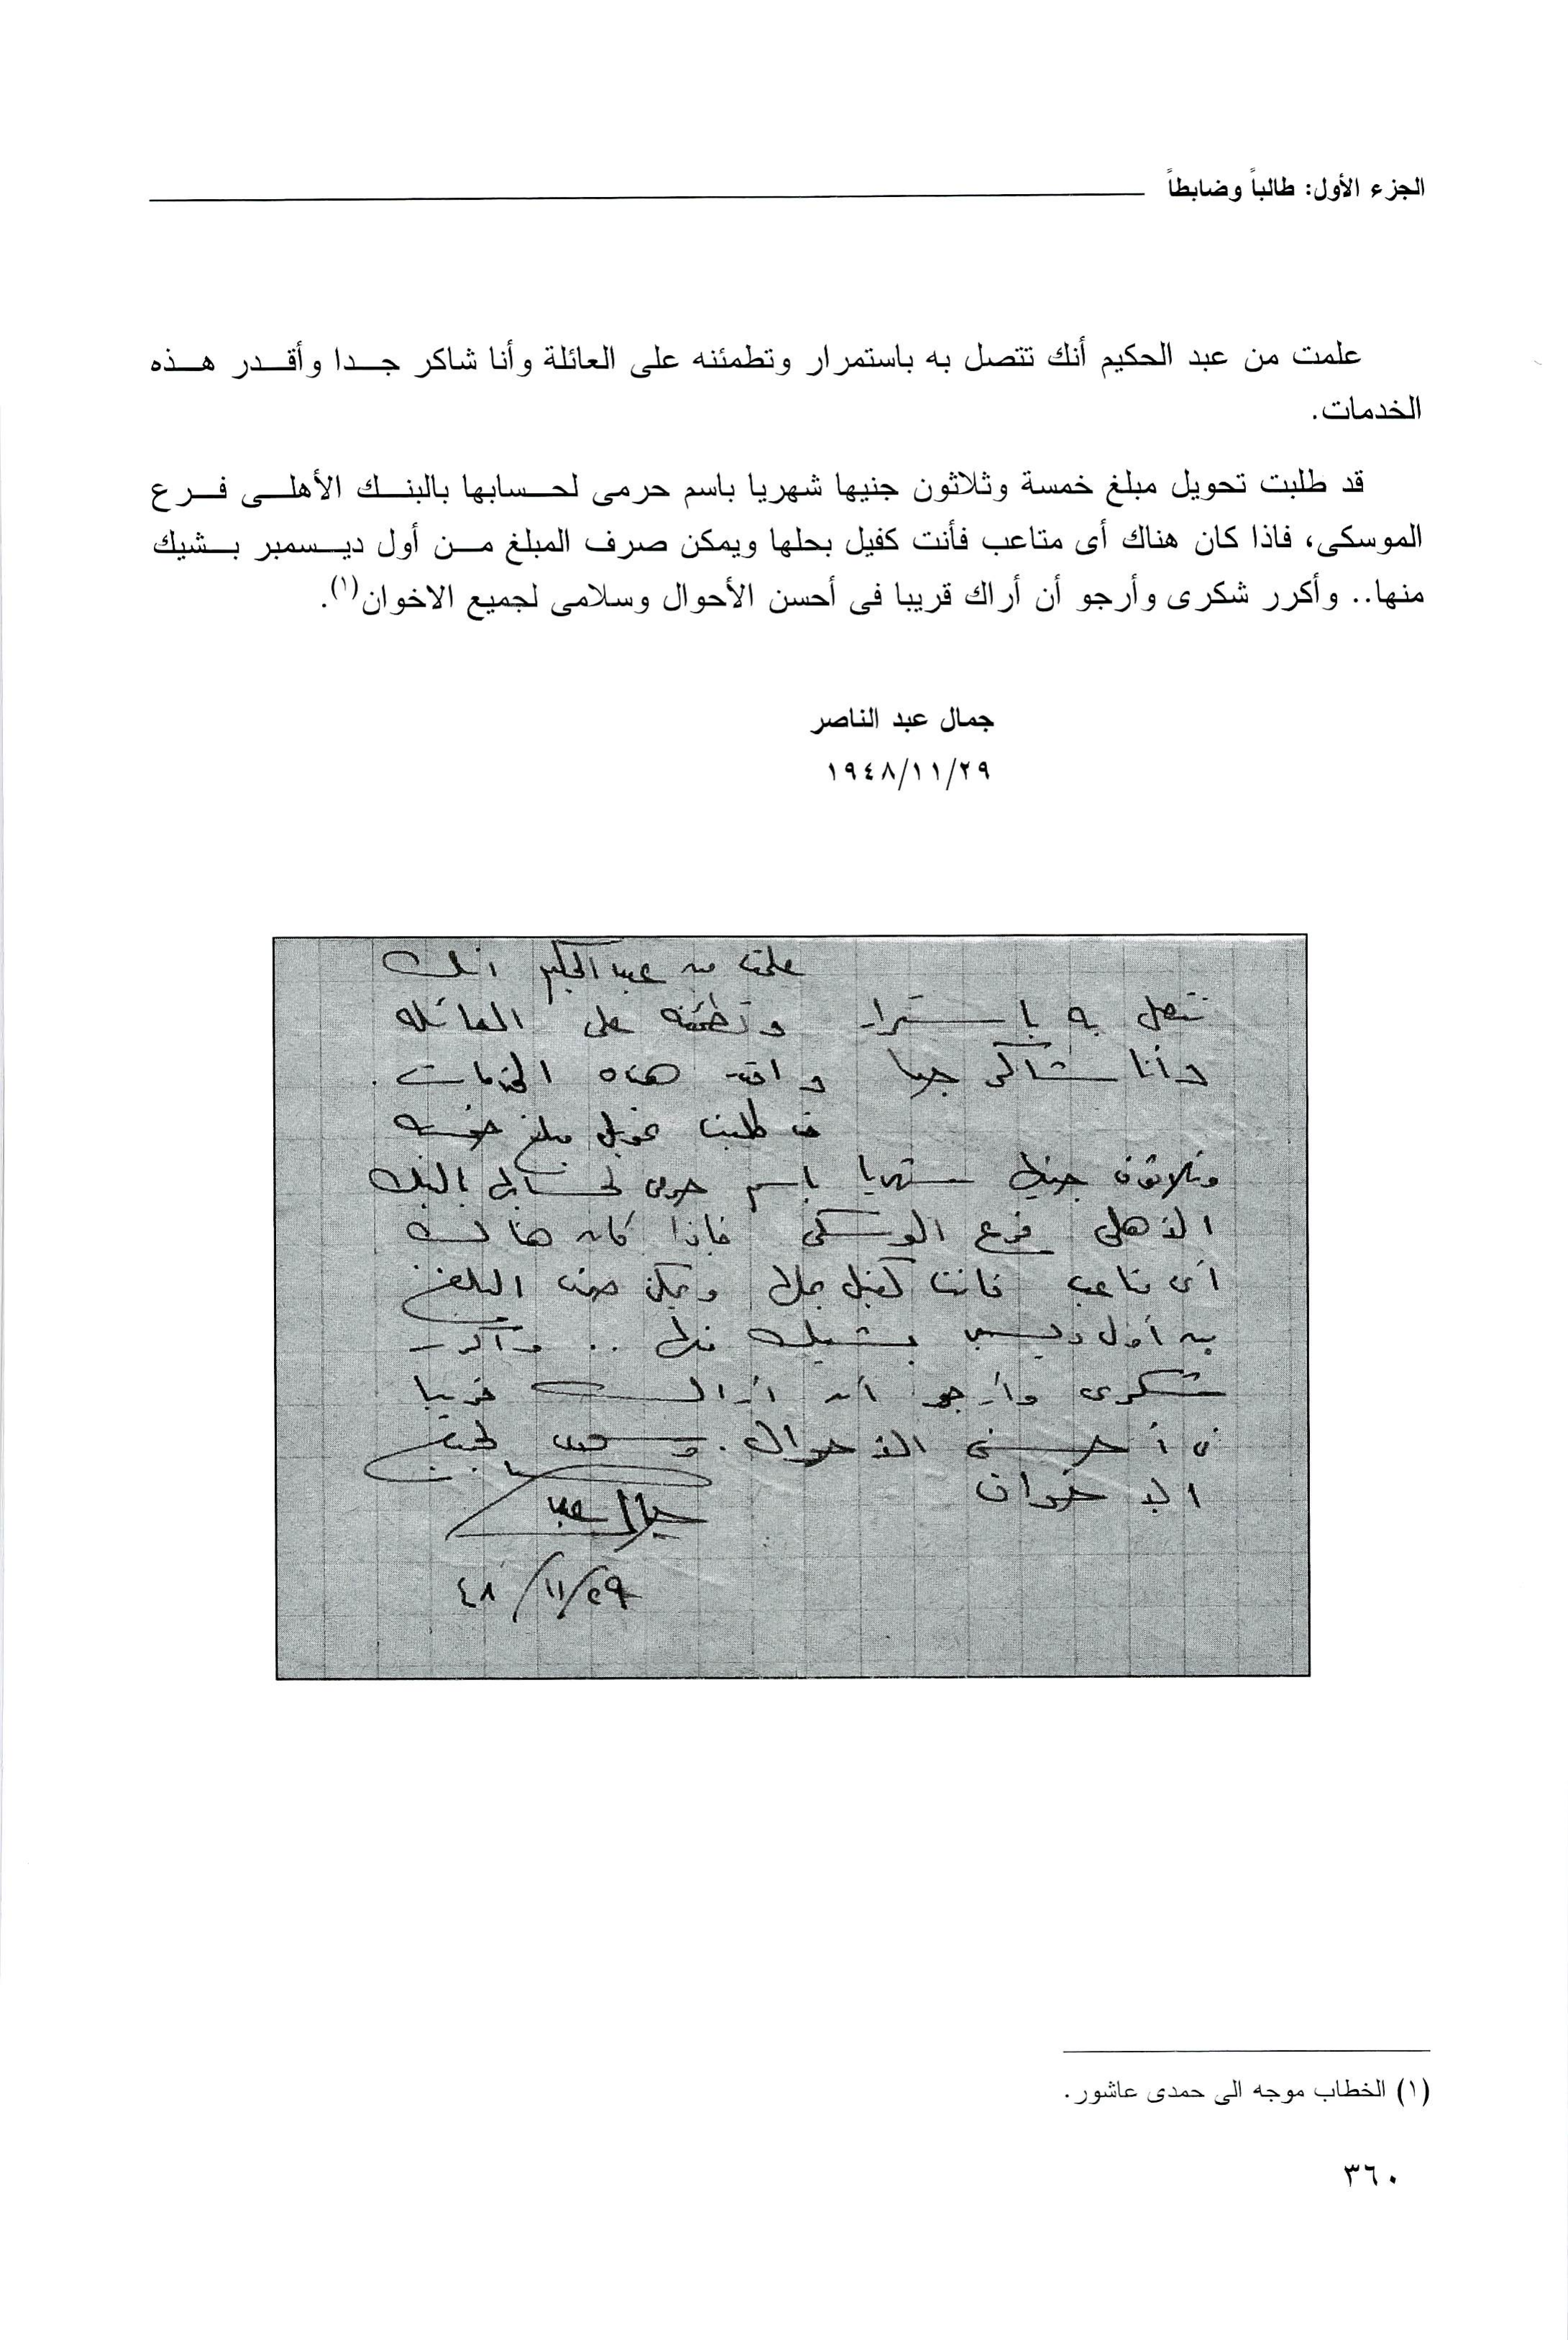 الجزء الأول: طالباً وضابطاً
علمت من عبد الحكيم أنك تتصل به باستمرار وتطمئنه على العائلة وأنا شاكر جدا وأقدر هذه
الخدمات.
قد طلبت تحويل مبلغ خمسة وثلاثون جنيها شهريا باسم حرمى لحسابها بالبنك الأهلى فرع
الموسكى، فاذا كان هناك أى متاعب فأنت كفيل بحلها ويمكن صرف المبلغ من أول ديسمبر بشيك
منها.. وأكرر شكرى وأرجو أن أراك قريبا فى أحسن الأحوال وسلامى لجميع الاخوان(١).
جمال عبد الناصر
١٩٤٨/١١/٢٩
علمت من عبد الحكيم انك
تتصل به باستمرار وتطمئنه على العائله
وأنا شاكر جدا واقدر هذه الخدمات .
قد طلبت تحويل مبلغ خمسه
وثلاثون جنيها شهريا باسم حرمى لحسابها بالبنك
الأهلى فرع الموسكى فاذا كان هناك
أى متاعب فانت كفيل بحلها ويمكن صرف المبلغ
من أول ديسمبر بشيك منها .. وأكرر
شكرى وأرجو أن أراك قريبا
فى أحسن الأحوال . وسلامى لجميع
الإخوان
جمال عبد
٤٨/١١/٢٩
(١) الخطاب موجه الى حمدى عاشور.
٣٦٠